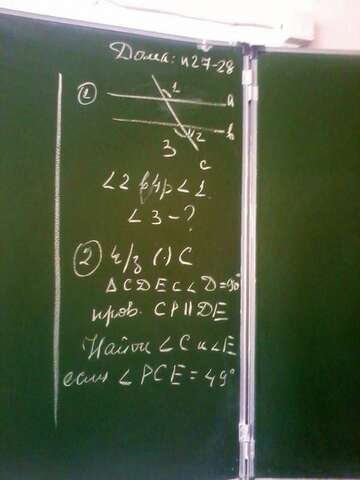 Дома: п27-28
①
1
a
b
2
3
c
∠2 в 4р < ∠1.
∠3 - ?
② ч/з (·) C
△ CDE с ∠D = 90°
пров. CP || DE
Найти ∠C и ∠E
если ∠PCE = 49°